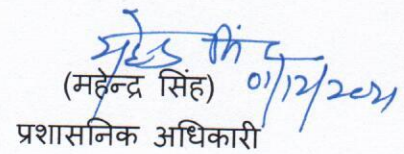 महेन्द्र सिंह 01/12/2021
(महेन्द्र सिंह)
प्रशासनिक अधिकारी